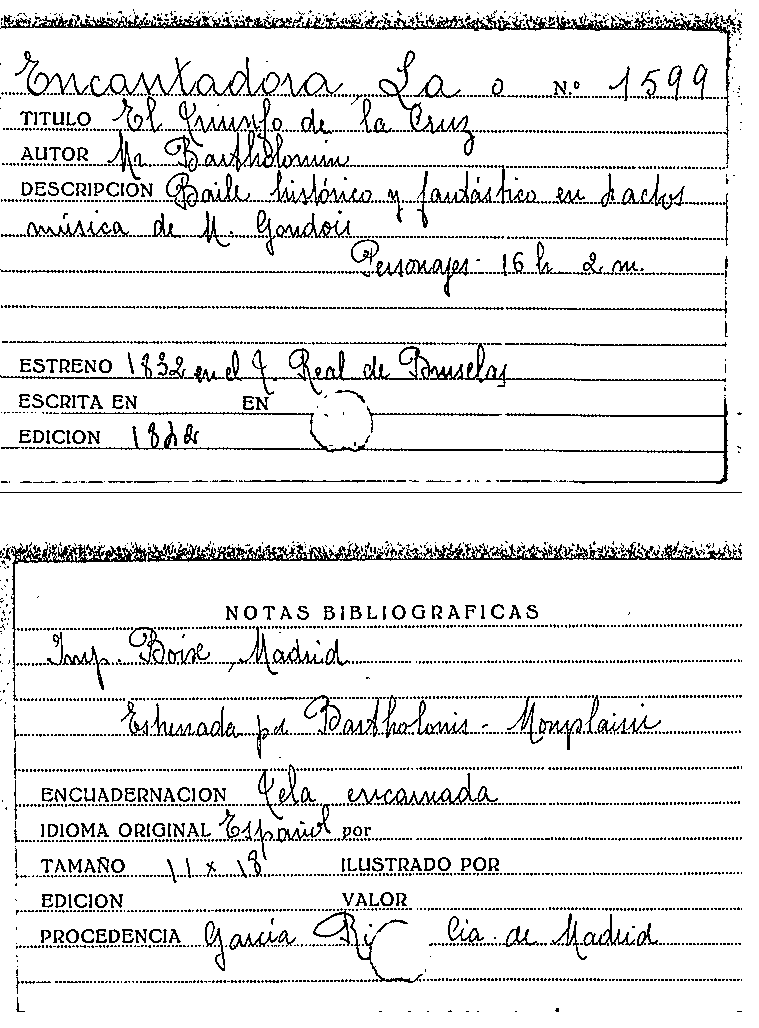 Encantadora, La o N.º 1599
TITULO El Triunfo de la Cruz
AUTOR Mr Bartholomin
DESCRIPCION Baile histórico y fantástico en actos
música de M. Gondois
Personajes- 16 h 2 m.
ESTRENO 1832 en el T. Real de Bruselas
ESCRITA EN EN
EDICION
NOTAS BIBLIOGRAFICAS
Imp. Boixe, Madrid
Estrenada por Bartholomin - Monplaisir
ENCUADERNACION Tela encarnada
IDIOMA ORIGINAL Español por
TAMAÑO 11 x 18 ILUSTRADO POR
EDICION VALOR
PROCEDENCIA García cia. de Madrid